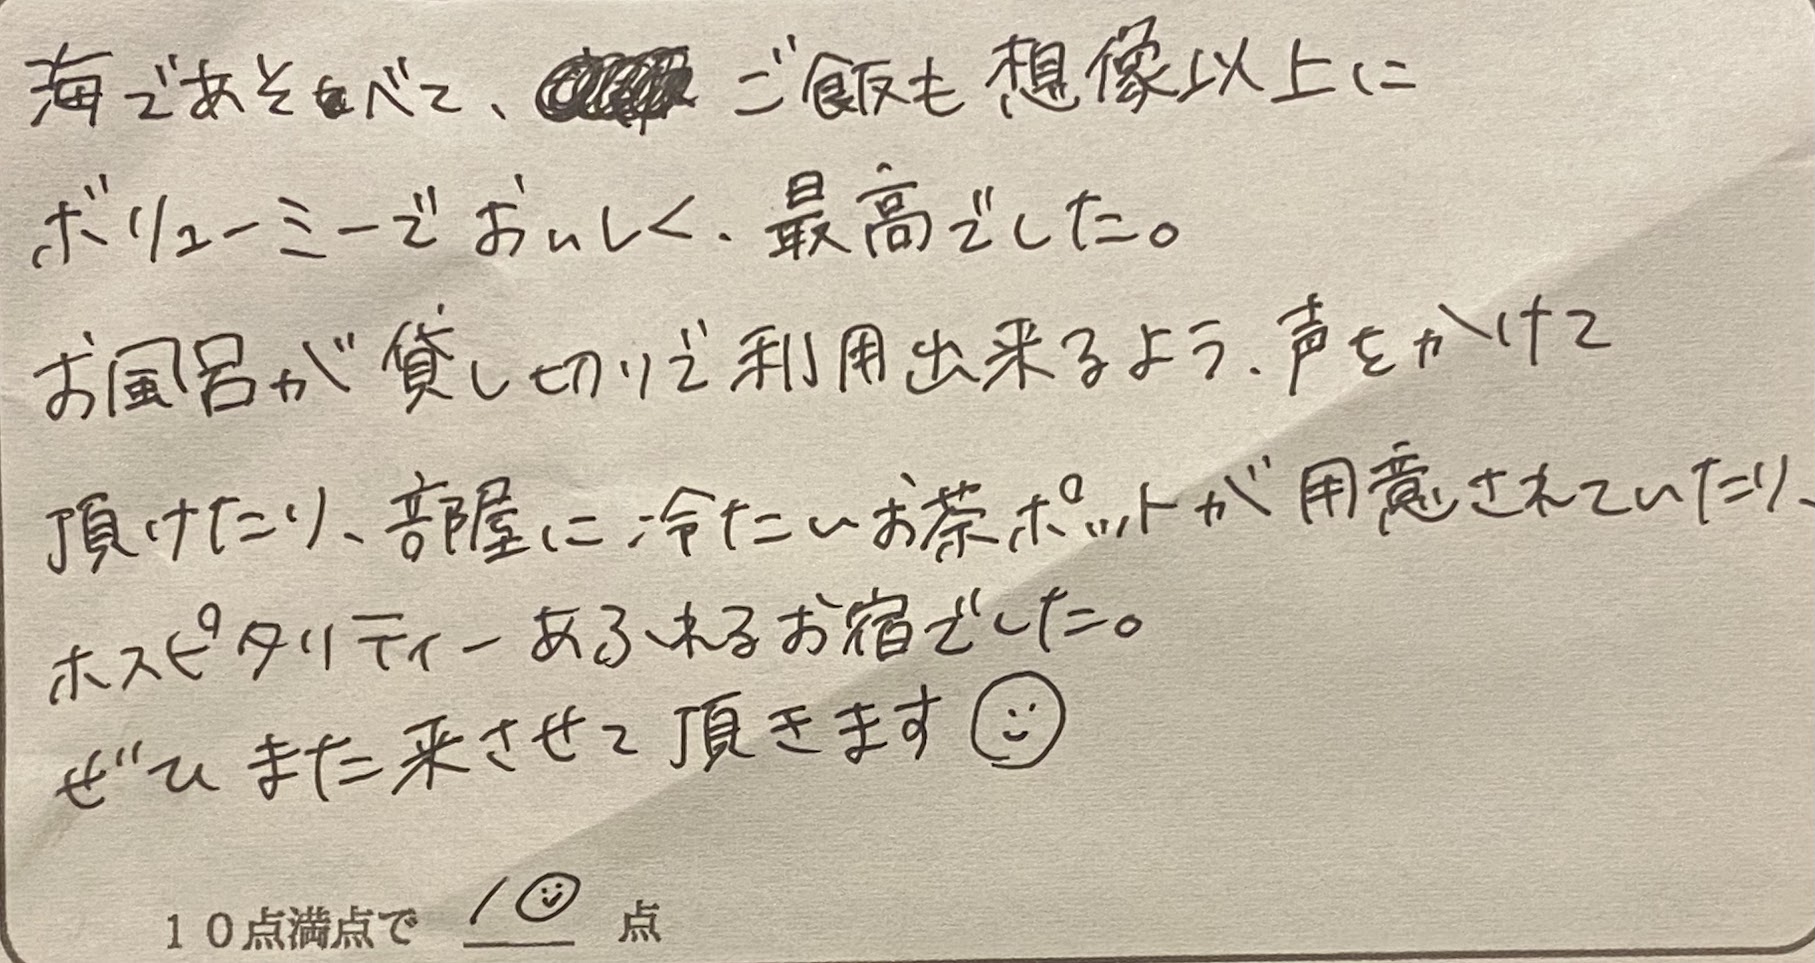 海であそべて、ご飯も想像以上に
ボリューミーでおいしく、最高でした。
お風呂が貸し切りで利用出来るよう、声をかけて
頂けたり、部屋に冷たいお茶ポットが用意されていたり、
ホスピタリティーあふれるお宿でした。
ぜひまた来させて頂きます
10点満点で 10 点